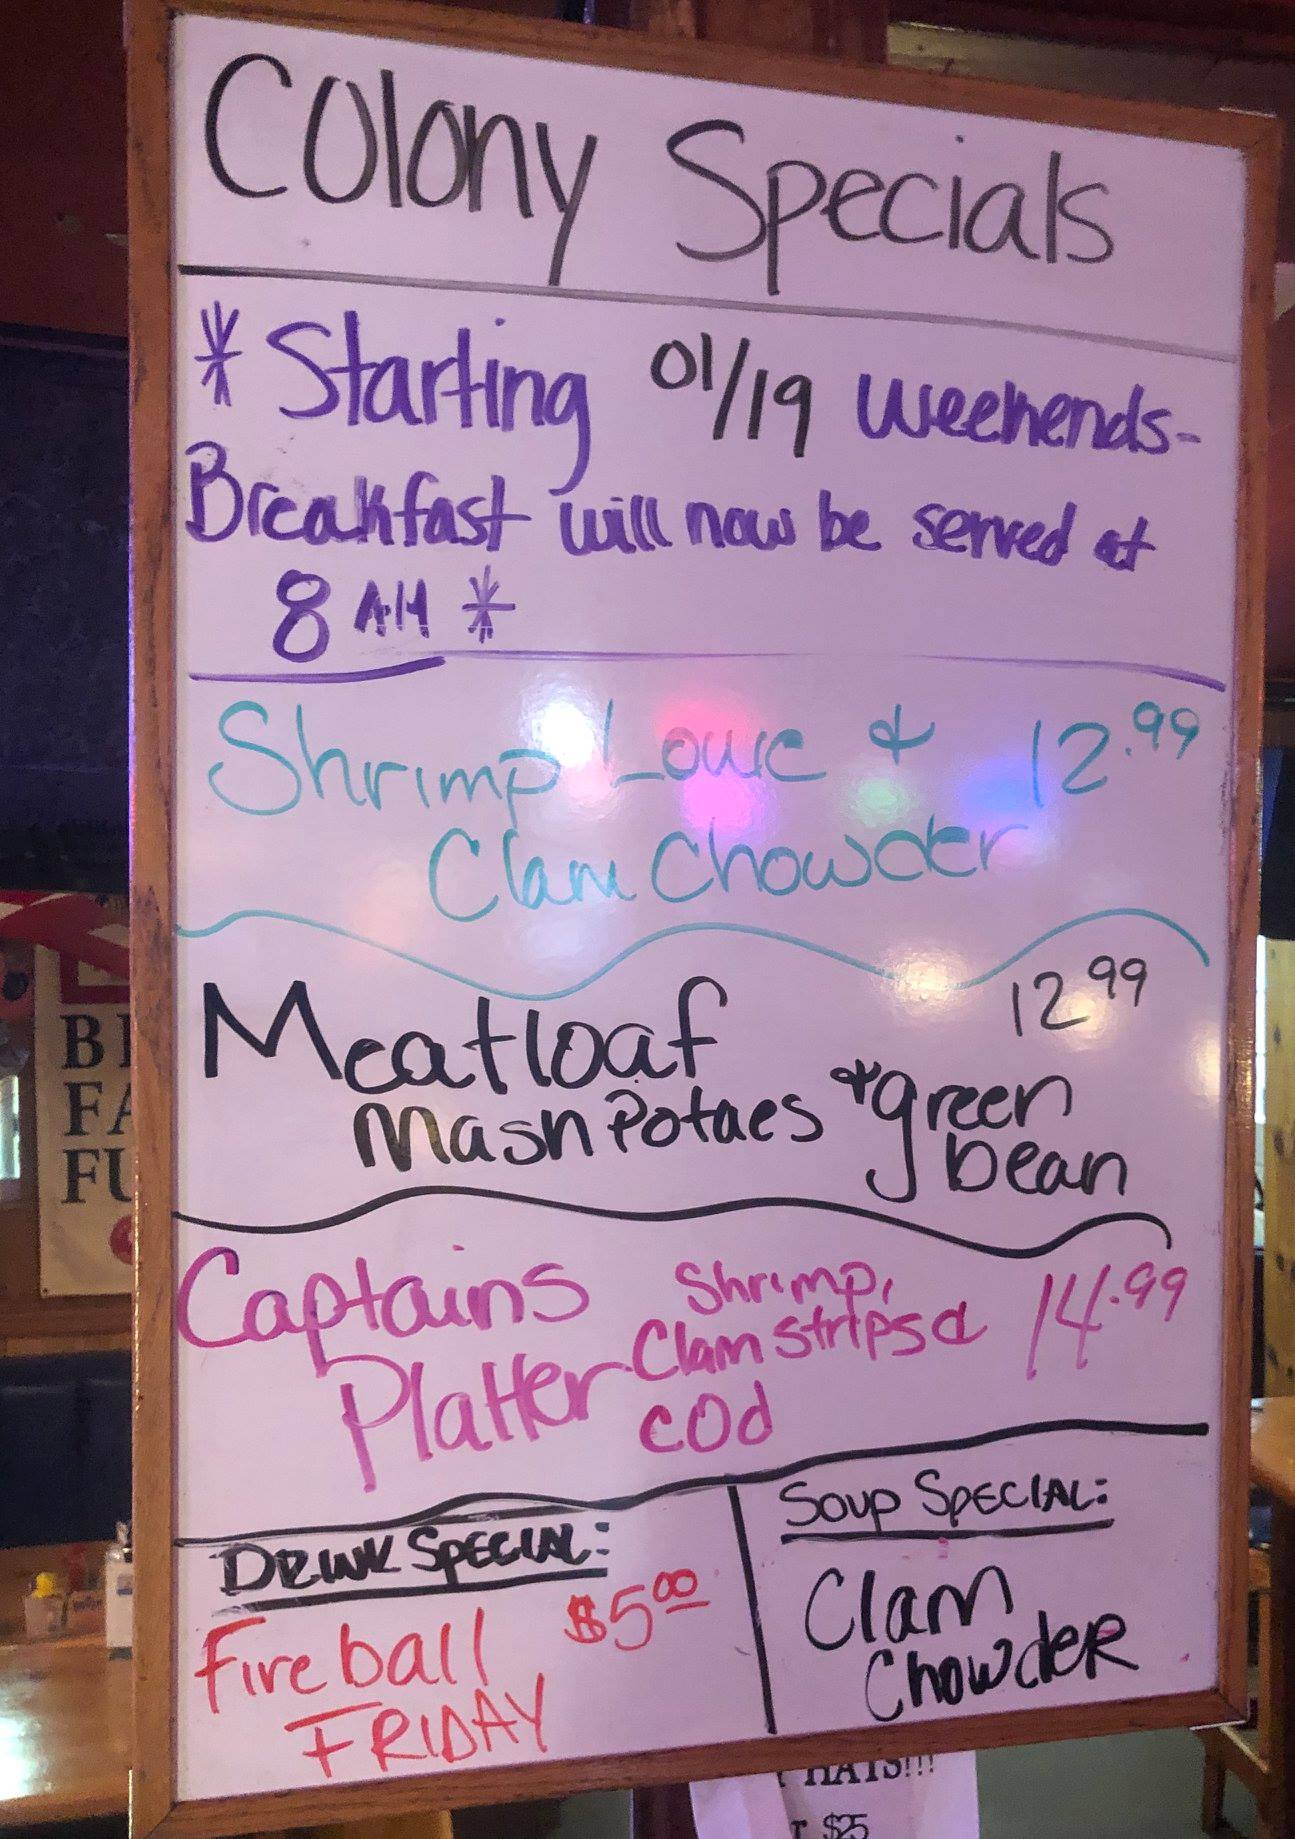 Colony Specials
* Starting 01/19 Weekends-
Breakfast will now be served at
8 AM *
Shrimp Louie & 12.99
Clam Chowder
Meatloaf 12 99
Mash Potaes & green
bean
Captains Shrimp, 14.99
Platter Clam strips &
cod
DRINK SPECIAL:
Fireball $5.00
FRIDAY
SOUP SPECIAL:
Clam
ChowdeR
B
FA
FU
HATS!!!
$25